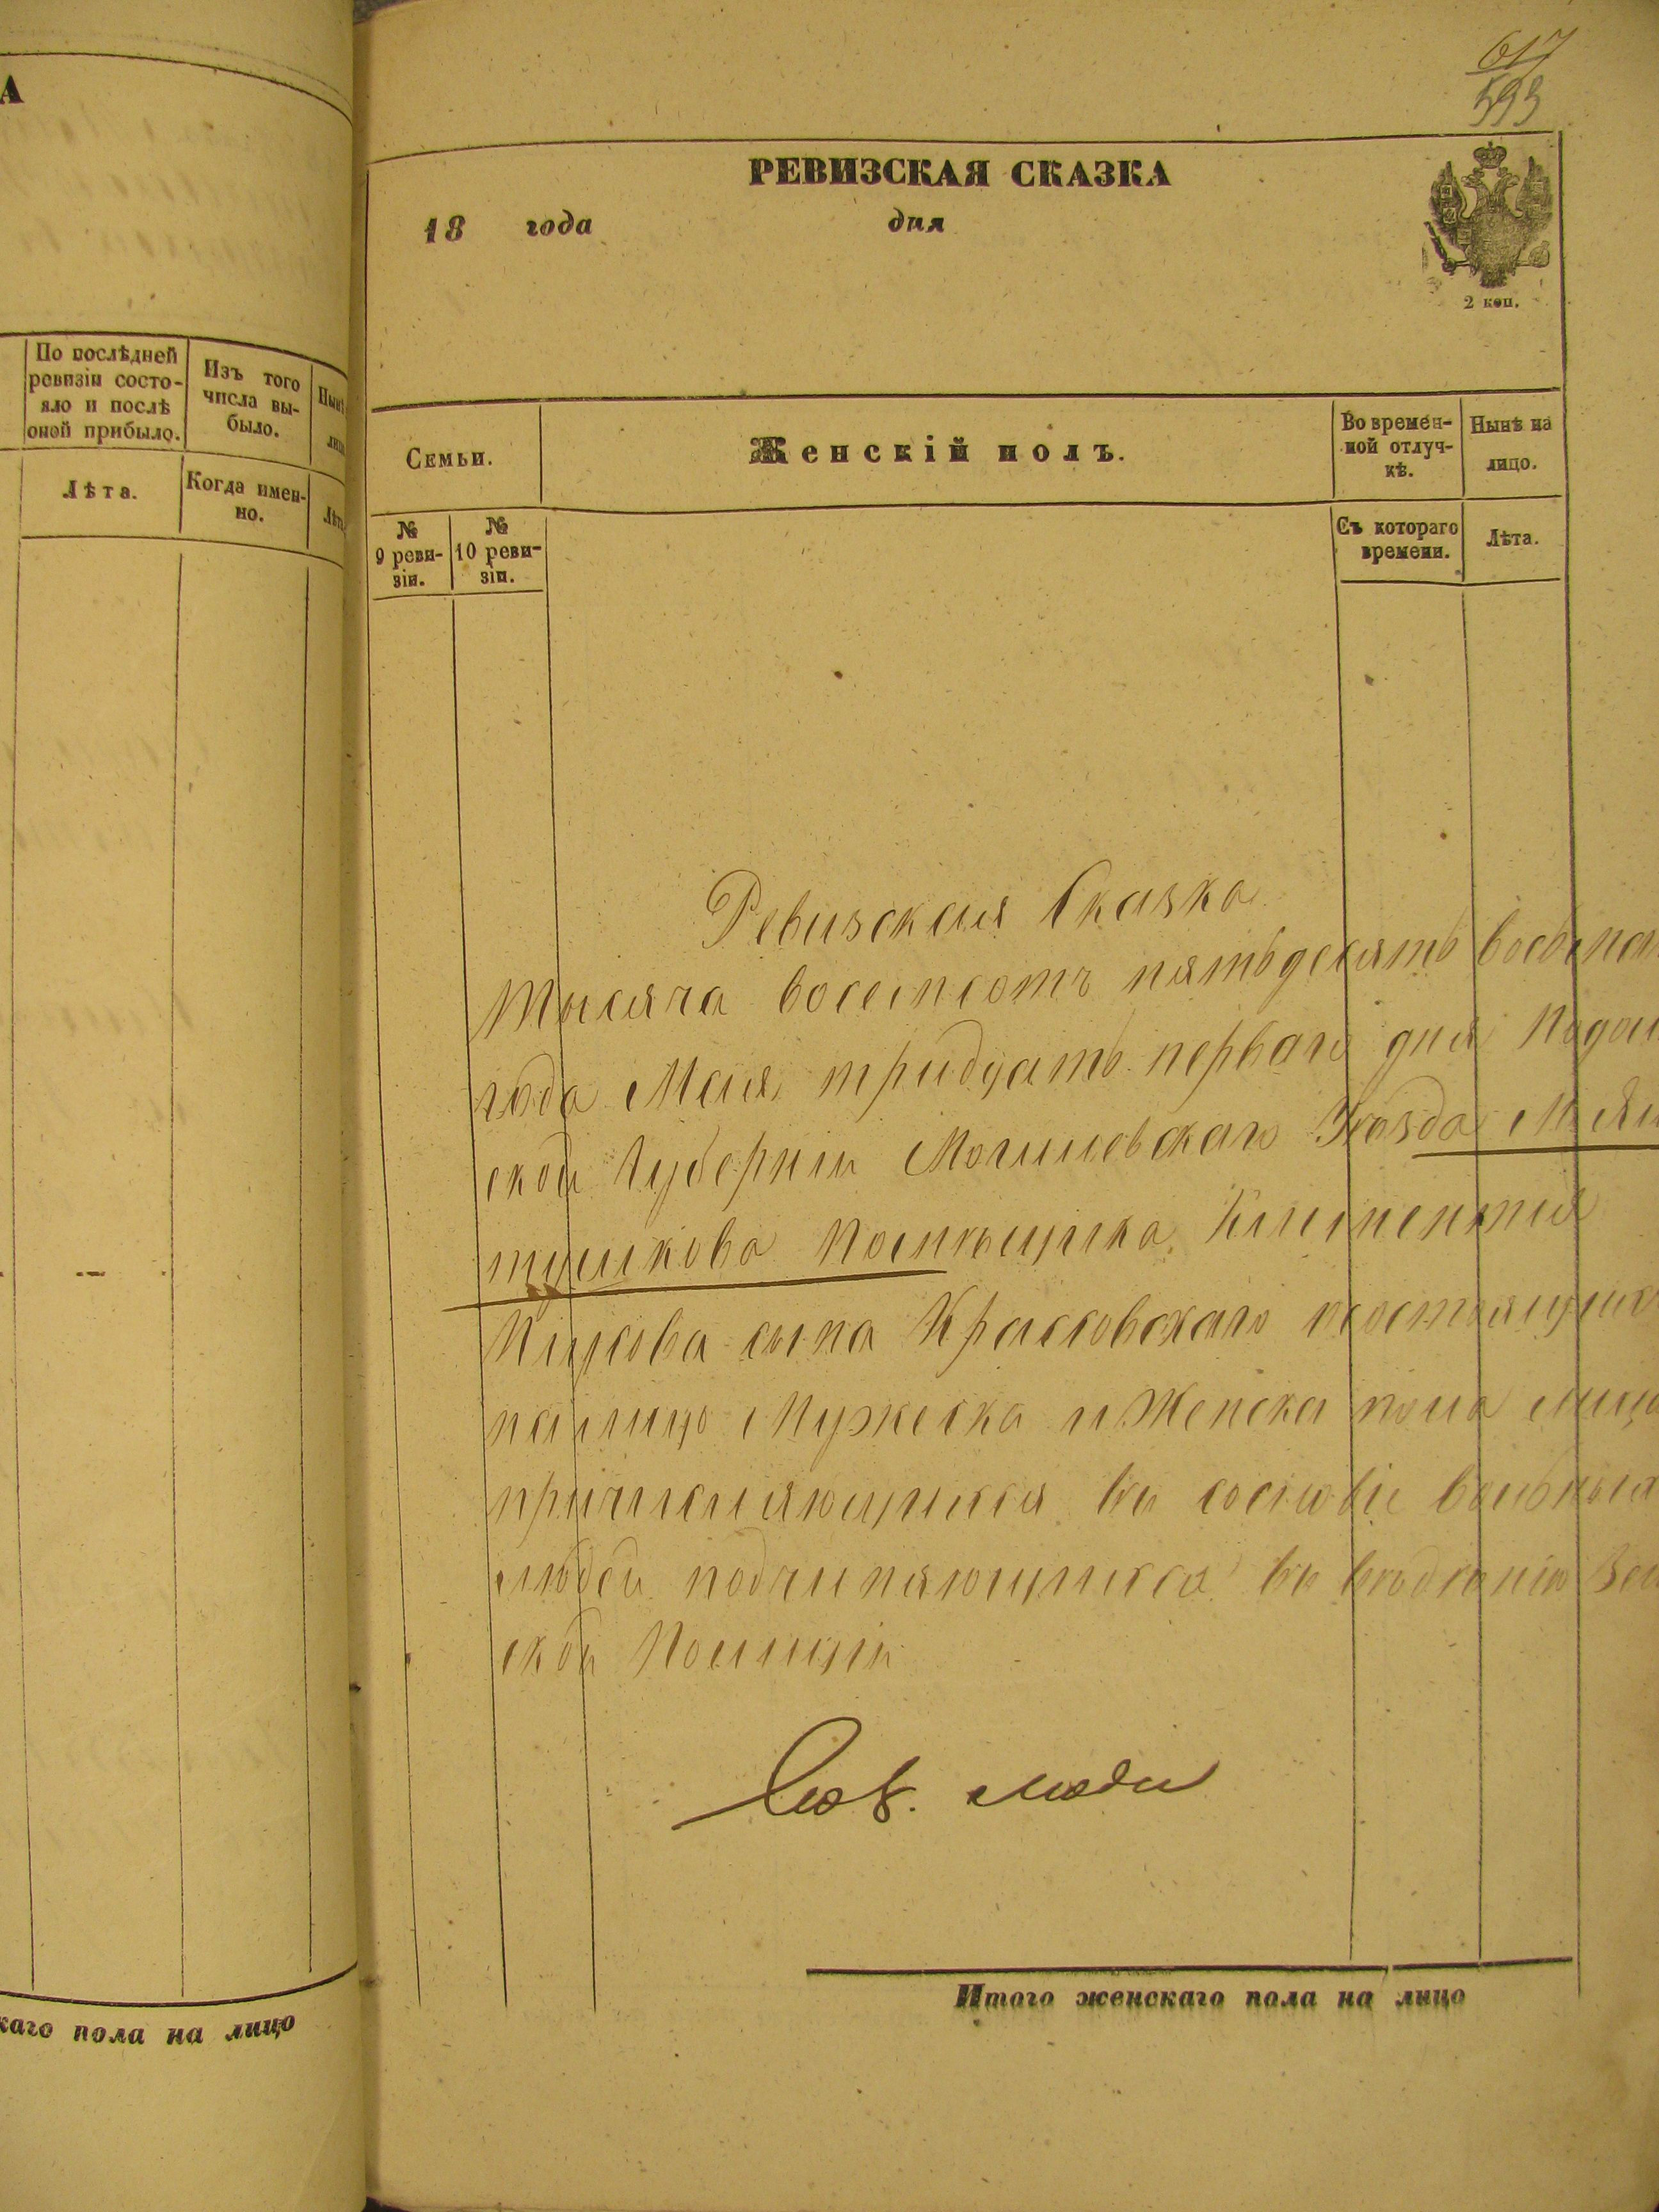 А
По послѣдней
ревизіи состо-
яло и послѣ
оной прибыло.
Изъ того
числа вы-
было.
Лѣта.
Когда имен-
но.
каго пола на лицо
617
593
РЕВИЗСКАЯ СКАЗКА
18 года дня
2 коп.
Семьи.
Женскій полъ.
Во времен-
ной отлуч-
кѣ.
Нынѣ на
лицо.
№
9 реви-
зіи.
№
10 реви-
зіи.
Съ котораго
времени.
Лѣта.
Ревизская Сказка
Тысяча восемсотъ пятьдесятъ восьма
года Мая тридцать перваго дня Подоль
ской Губерніи Могилевскаго Уѣзда М. Ял
тушкова Помѣщика Климентія
сына Красовскаго состоящихъ
на лицо Мужеска и Женска пола лицъ
причисляющихся въ сословіе вольныхъ
людей подчиняющихся въ вѣдѣніи Зем
ской Полиціи
люди
Итого женскаго пола на лицо